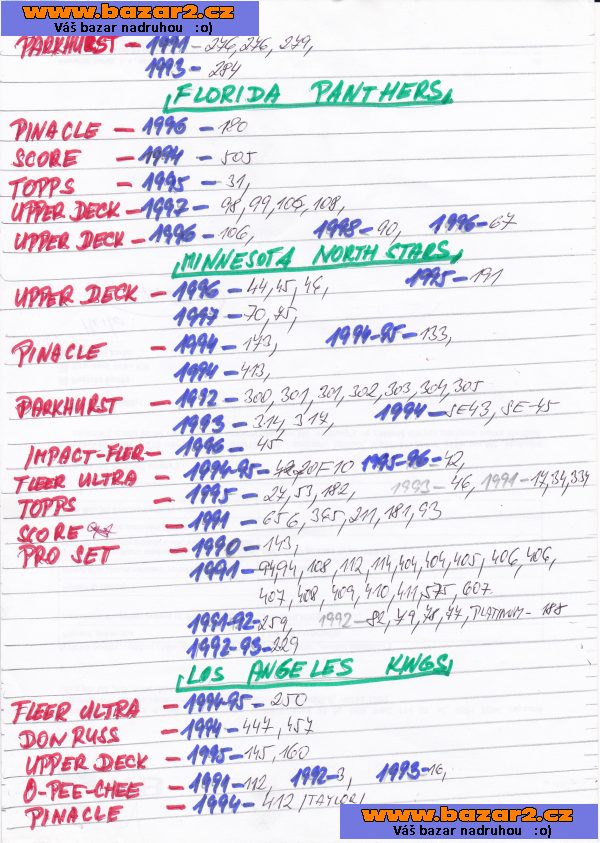 www.bazar2.cz
Váš bazar nadruhou :o)
PARKHURST - 1991 - 276, 276, 279,
1993 - 284
FLORIDA PANTHERS,
PINACLE - 1996 - 180
SCORE - 1994 - 505
TOPPS - 1995 - 31,
UPPER DECK - 1997 - 98, 99, 106, 108,
UPPER DECK - 1996 - 106, 1998 - 90, 1996 - 67
MINNESOTA NORTH STARS,
UPPER DECK - 1996 - 44, 45, 46, 1995 - 191
1997 - 70, 95,
PINACLE - 1994 - 173, 1994-95 - 133,
1994 - 413,
PARKHURST - 1992 - 300, 301, 301, 302, 303, 304, 305
1993 - 314, 314, 1994 - SE43, SE-45
IMPACT-FLER - 1996 - 45
FLEER ULTRA - 1994-95 - 10F10 1995-96 - 42,
TOPPS - 1995 - 27, 53, 182, 1993 - 46, 1991 - 17, 34, 334
SCORE - 1991 - 656, 365, 211, 181, 93
PRO SET - 1990 - 143,
1991 - 94, 94, 108, 112, 114, 404, 404, 405, 406, 406,
407, 408, 409, 410, 411, 575, 607
1991-92 - 259, 1992 - 82, 79, 78, 77, PLATINUM - 188
1992-93 - 229
LOS ANGELES KINGS,
FLEER ULTRA - 1994-95 - 250
DONRUSS - 1994 - 447, 457
UPPER DECK - 1995 - 145, 160
O-PEE-CHEE - 1991 - 112, 1992 - 3, 1993 - 16,
PINACLE - 1994 - 412 /TAYLOR/
www.bazar2.cz
Váš bazar nadruhou :o)